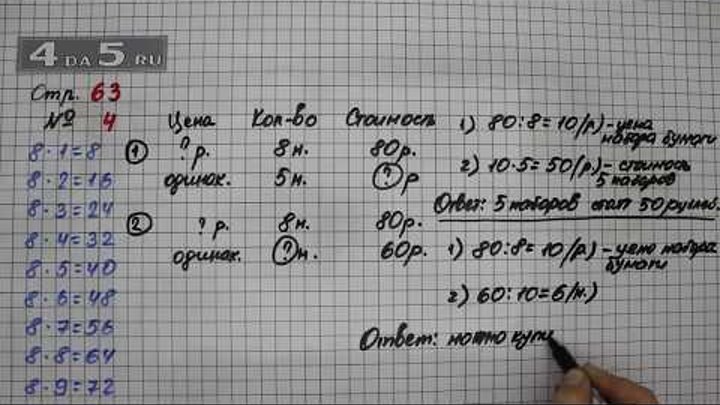 4 DA 5.RU
Стр. 63
№ 4
8·1=8
8·2=16
8·3=24
8·4=32
8·5=40
8·6=48
8·7=56
8·8=64
8·9=72
Цена Кол-во Стоимость
1 ? р. 8 н. 80 р.
одинак. 5 н. ? р
2 ? р. 8 н. 80 р.
одинак. ? н. 60 р.
1) 80:8=10(р)-цена
набора бумаги
2) 10·5=50(р)-стоимость
5 наборов
Ответ: 5 наборов стоят 50 рублей.
1) 80:8=10(р)-цена набора
бумаги
2) 60:10=6(н.)
Ответ: можно купи